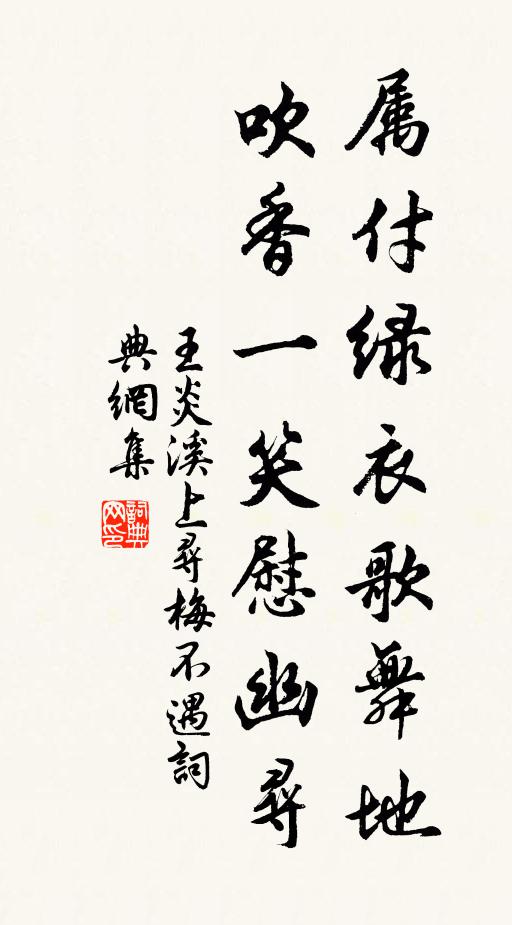 属付绿衣歌舞地
吹香一笑慰幽尋
王炎溪上尋梅不遇詞
典網集
詞典網印